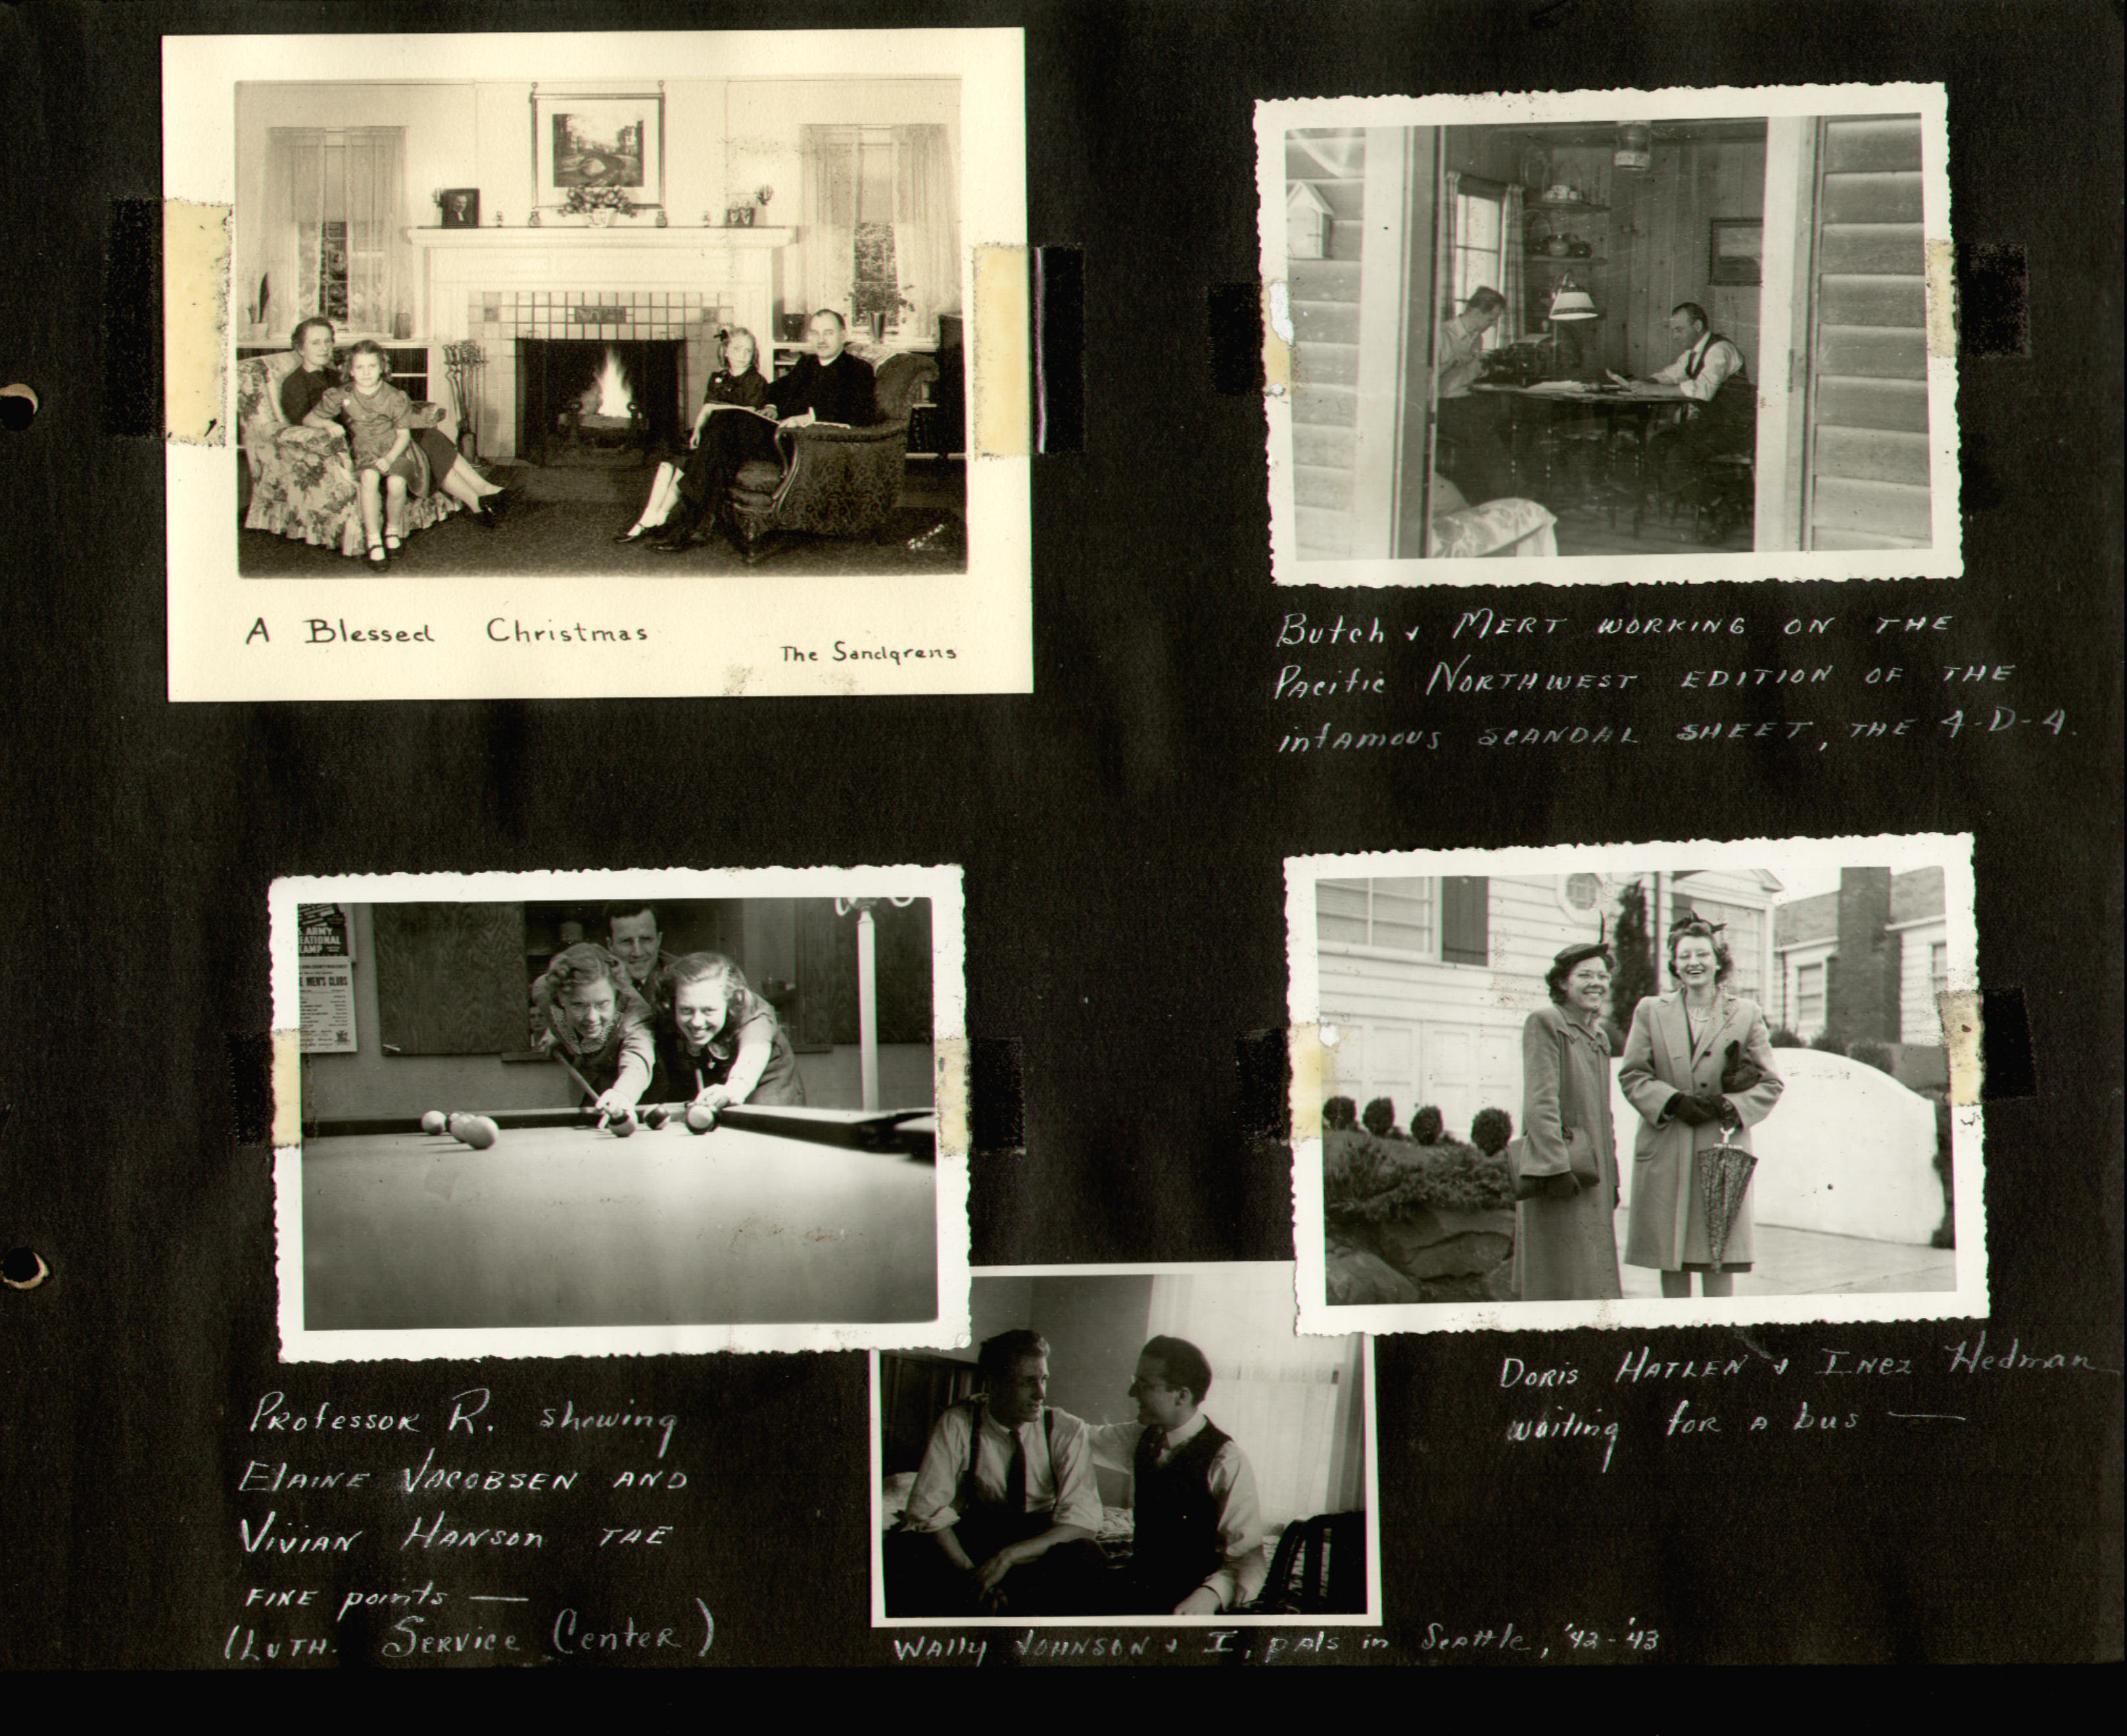 A Blessed Christmas
The Sandgrens
Butch & Mert working on the
Pacific Northwest edition of the
infamous scandal sheet, the 4-D-4.
S. ARMY
EATIONAL
AMP
E MEN'S CLUBS
Professor R. showing
Elaine Jacobsen and
Vivian Hanson the
fine points —
(Luth. Service Center)
Doris Hatlen & Inez Hedman
waiting for a bus —
Wally Johnson & I, pals in Seattle, '42-'43